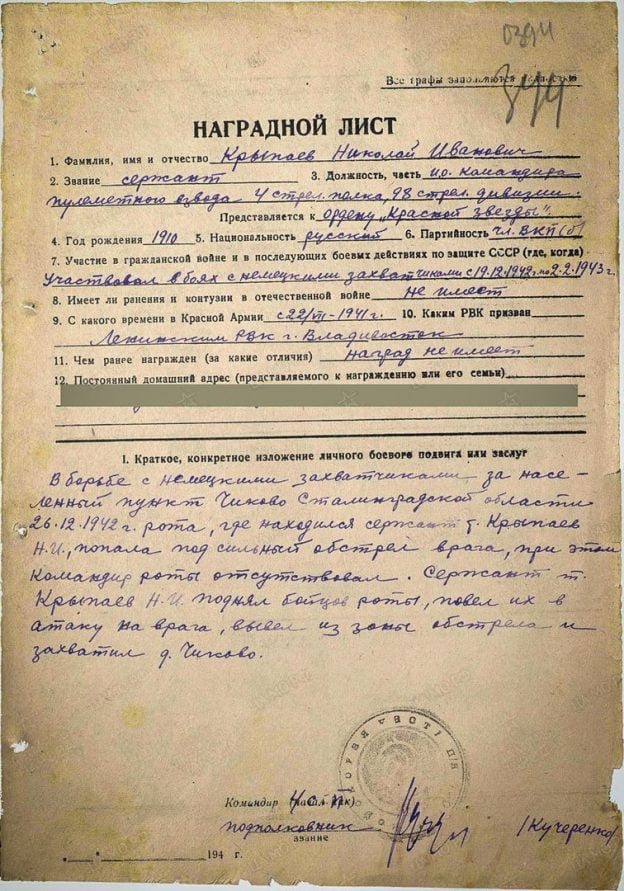 0394
Все графы заполняются полностью
394
НАГРАДНОЙ ЛИСТ
1. Фамилия, имя и отчество Крыпаев Николай Иванович
2. Звание сержант 3. Должность, часть и.о. командира
пулеметного взвода 4 стрел. полка, 98 стрел. дивизии.
Представляется к ордену „Красной звезды".
4. Год рождения 1910 5. Национальность русский 6. Партийность чл. ВКП(б)
7. Участие в гражданской войне и в последующих боевых действиях по защите СССР (где, когда)
Участвовал в боях с немецкими захватчиками с 19.12.1942 г. по 2.2.1943 г.
8. Имеет ли ранения и контузии в отечественной войне не имеет
9. С какого времени в Красной Армии с 22/VII-1941 г. 10. Каким РВК призван
Ленинским РВК г. Владивосток
11. Чем ранее награжден (за какие отличия) наград не имеет
12. Постоянный домашний адрес (представляемого к награждению или его семьи)
I. Краткое, конкретное изложение личного боевого подвига или заслуг
В борьбе с немецкими захватчиками за насе-
ленный пункт Чиково Сталинградской области
26.12.1942 г. рота, где находился сержант т. Крыпаев
Н.И., попала под сильный обстрел врага, при этом
командир роты отсутствовал. Сержант т.
Крыпаев Н.И. поднял бойцов роты, повел их в
атаку на врага, вывел из зоны обстрела и
захватил д. Чиково.
Командир 4 с.п.
подполковник /Кучеренко/
звание
194 г.